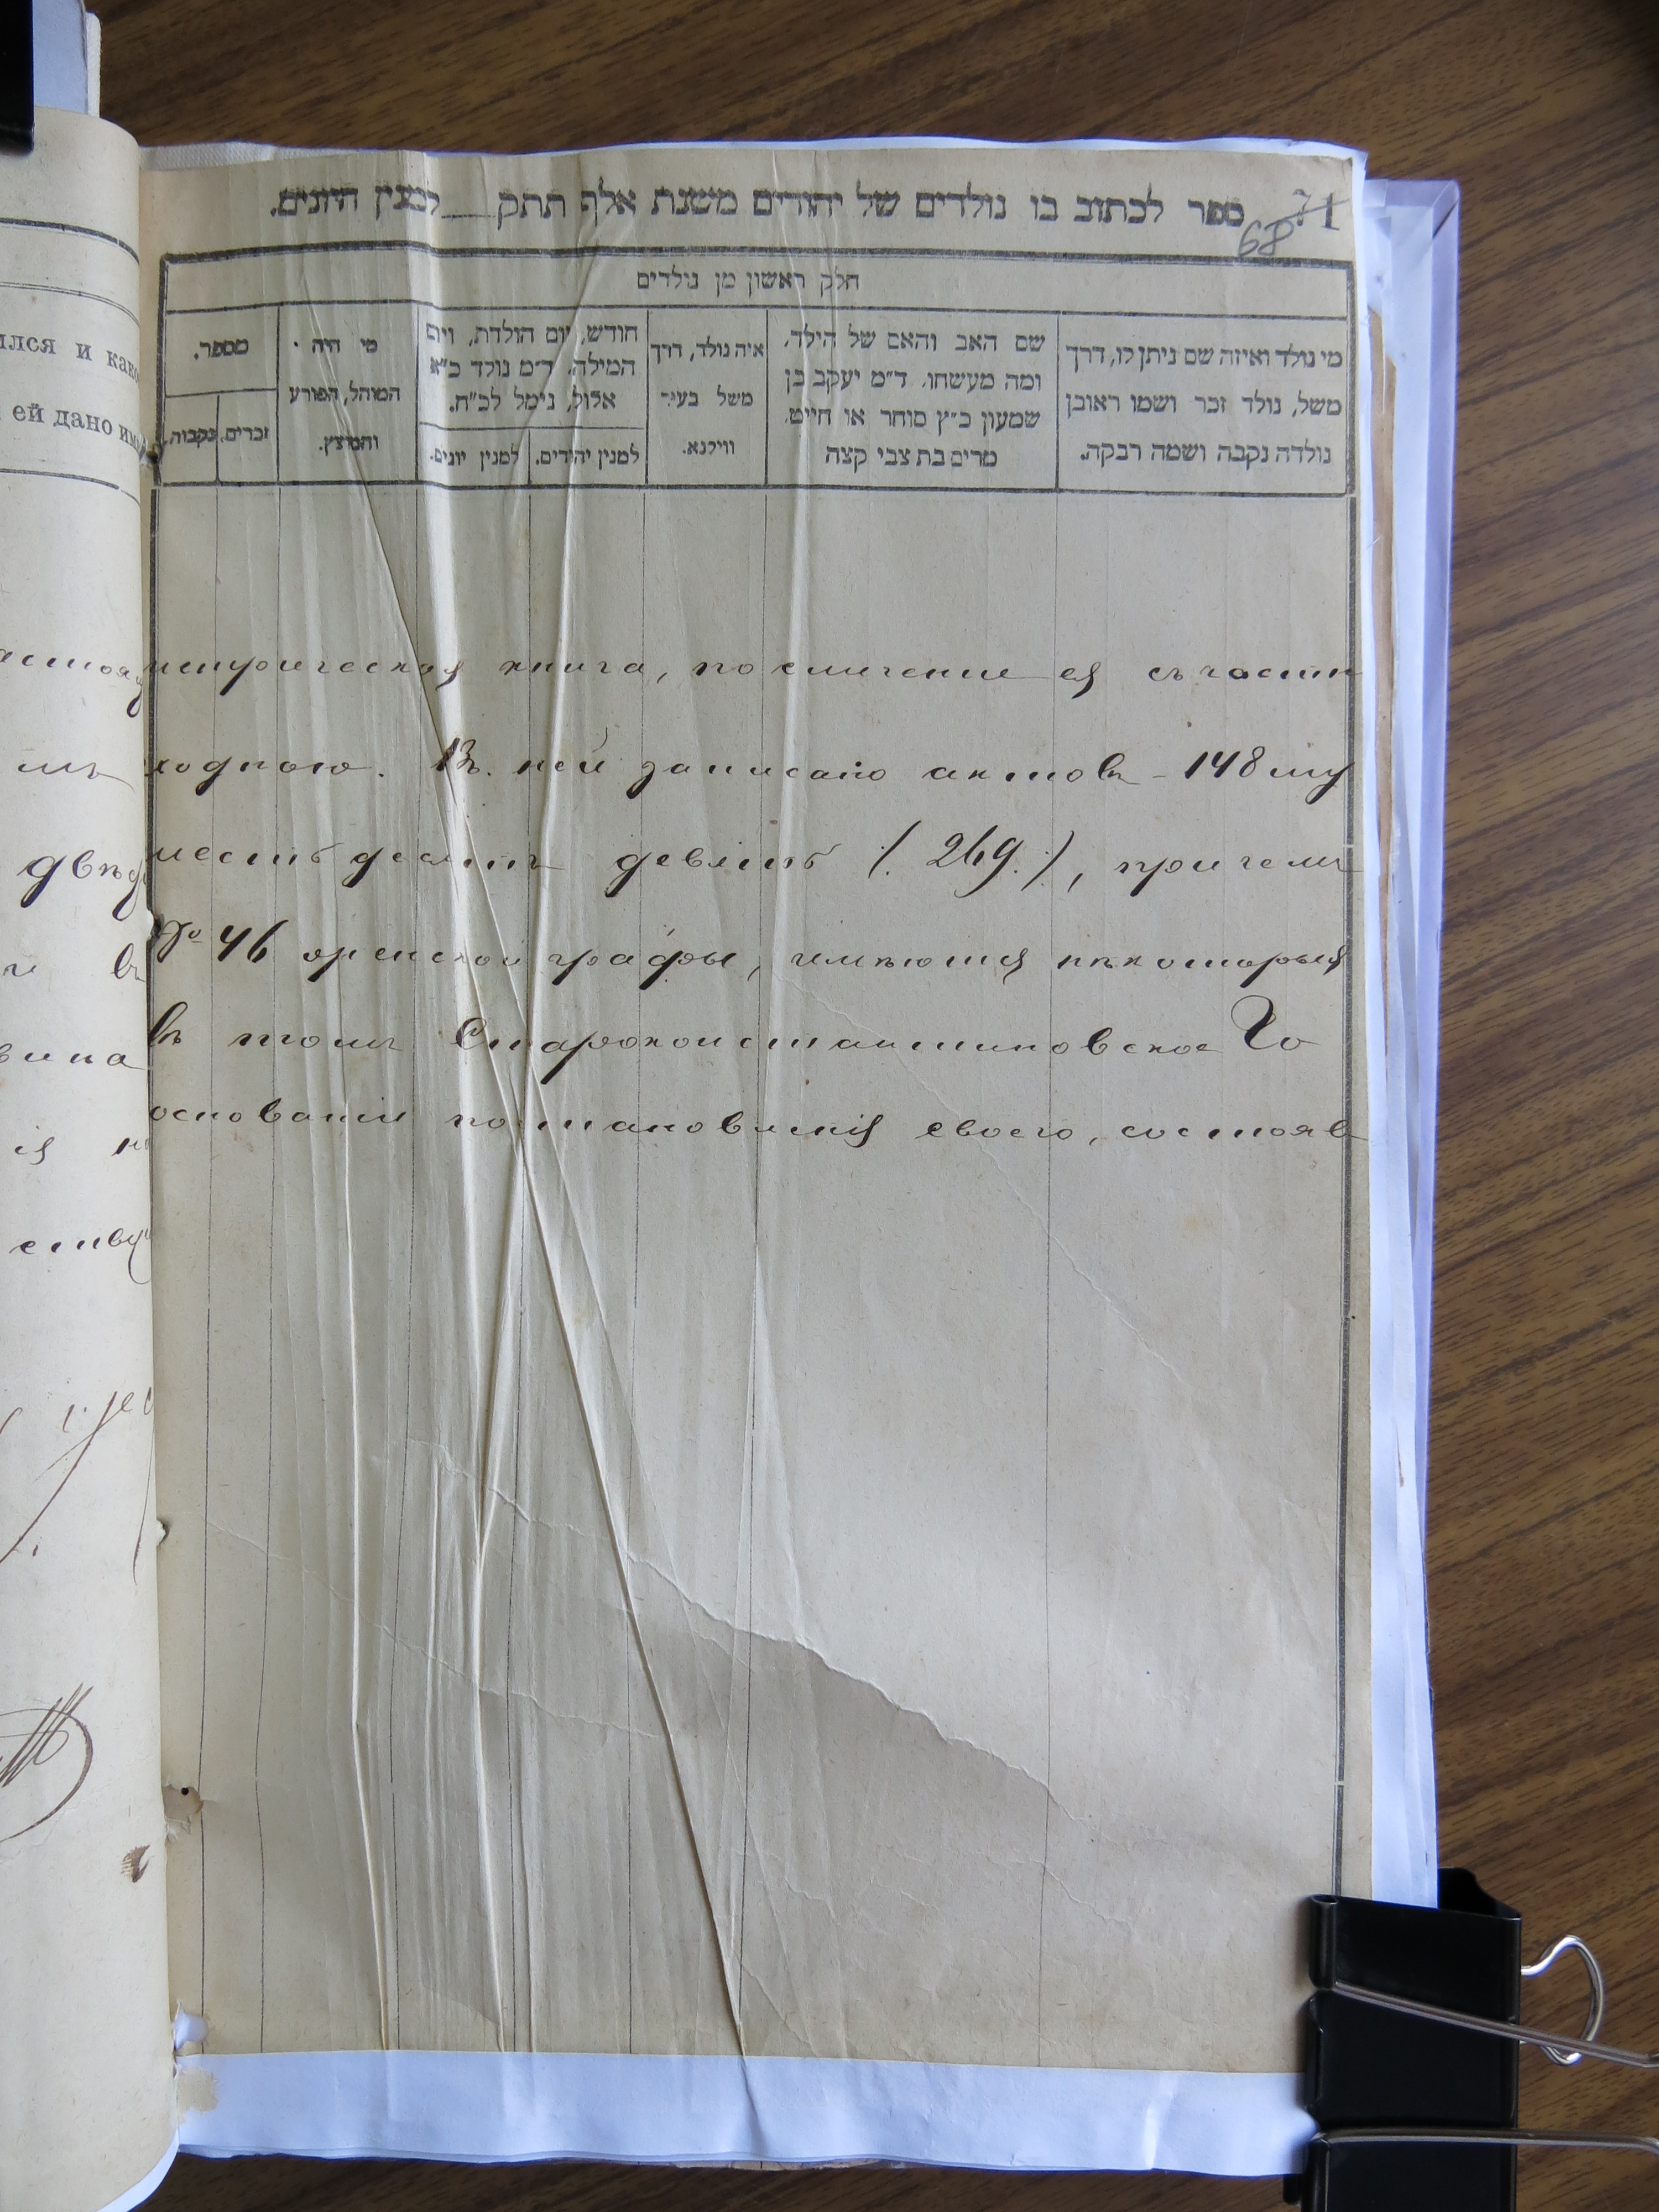 71
68
ספר לכתוב בו נולדים של יהודים משנת אלף תתק למנין היונים.
חלק ראשון מן נולדים
מי נולד ואיזה שם ניתן לו, דרך
משל, נולד זכר ושמו ראובן
נולדה נקבה ושמה רבקה.
שם האב והאם של הילד,
ומה מעשהו. ד״מ יעקב בן
שמעון כ״ץ סוחר או חייט.
מרים בת צבי קצה
איה נולד, דרך
משל בעיר
ווילנא.
חודש, יום הולדת, ויום
המילה. ד״מ נולד כ״א
אלול, נימל לכ״ח.
למנין יהודים.
למנין יונים.
מי היה
המוהל, הפורע
והמוצץ.
מספר.
זכרים.
נקבות.
ился и како
ей дано имя
метрическая книга, по сличение ея съ части
ходною. Въ ней записано актовъ - 148 му
десять девять (: 269 :), при чемъ
№ 46 женской графы, имѣются нѣкоторыя
въ томъ Староконстантиновское Го
основаніи постановленія своего, состояв